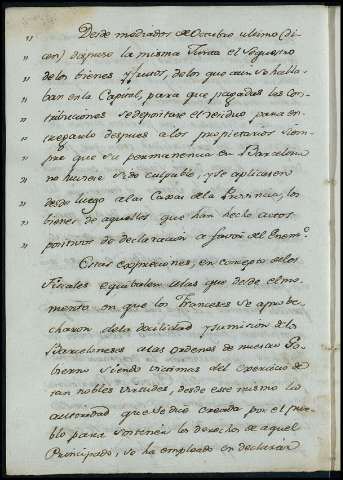 " Desde mediados de Octubre ultimo (di-
" cen) dispuso la misma Junta el seqüestro
" de los bienes y frutos, de los que aun se halla-
" ban en la Capital, para que pagadas las con-
" tribuciones se depositare el residuo para en-
" tregarlo despues a los propietarios siem-
" pre que su permanencia en Barcelona
" no hubiese sido culpable, y se aplicasen
" desde luego a las Caxas de la Provincia, los
" bienes de aquellos que han hecho actos
" positivos de declaracion a favor del Enemº.
Estas expresiones, en concepto de los
Fiscales equibalen a las que desde el mo-
mento en que los Franceses se aprobe-
charon de la docilidad y sumision de los
Barceloneses a las ordenes de nuestro Go-
bierno siendo victimas del exercicio de
tan nobles virtudes, desde este mismo la
autoridad que se dice creada por el pue-
blo para sostener los derechos de aquel
Principado, se ha empleado en declarar